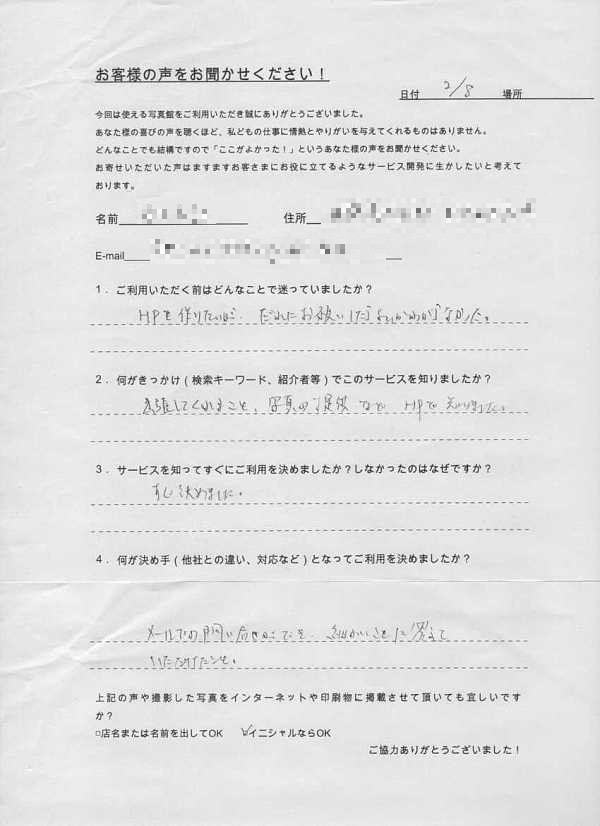 お客様の声をお聞かせください！
日付 2/8 場所
今回は使える写真館をご利用いただき誠にありがとうございました。
あなた様の喜びの声を聴くほど、私どもの仕事に情熱とやりがいを与えてくれるものはありません。
どんなことでも結構ですので「ここがよかった！」というあなた様の声をお聞かせください。
お寄せいただいた声はますますお客さまにお役に立てるようなサービス開発に生かしたいと考えて
おります。
名前 住所
E-mail
1．ご利用いただく前はどんなことで迷っていましたか？
HPを作りたいが、だれにお願いしたらよいかわからなかった。
2．何がきっかけ（検索キーワード、紹介者等）でこのサービスを知りましたか？
出張してくれること、写真の提供など HPで知りました。
3．サービスを知ってすぐにご利用を決めましたか？しなかったのはなぜですか？
すぐ決めました。
4．何が決め手（他社との違い、対応など）となってご利用を決めましたか？
メールでの問い合せ 細かいことに答えて
いただけた
上記の声や撮影した写真をインターネットや印刷物に掲載させて頂いても宜しいです
か？
□店名または名前を出してOK ☑イニシャルならOK
ご協力ありがとうございました！